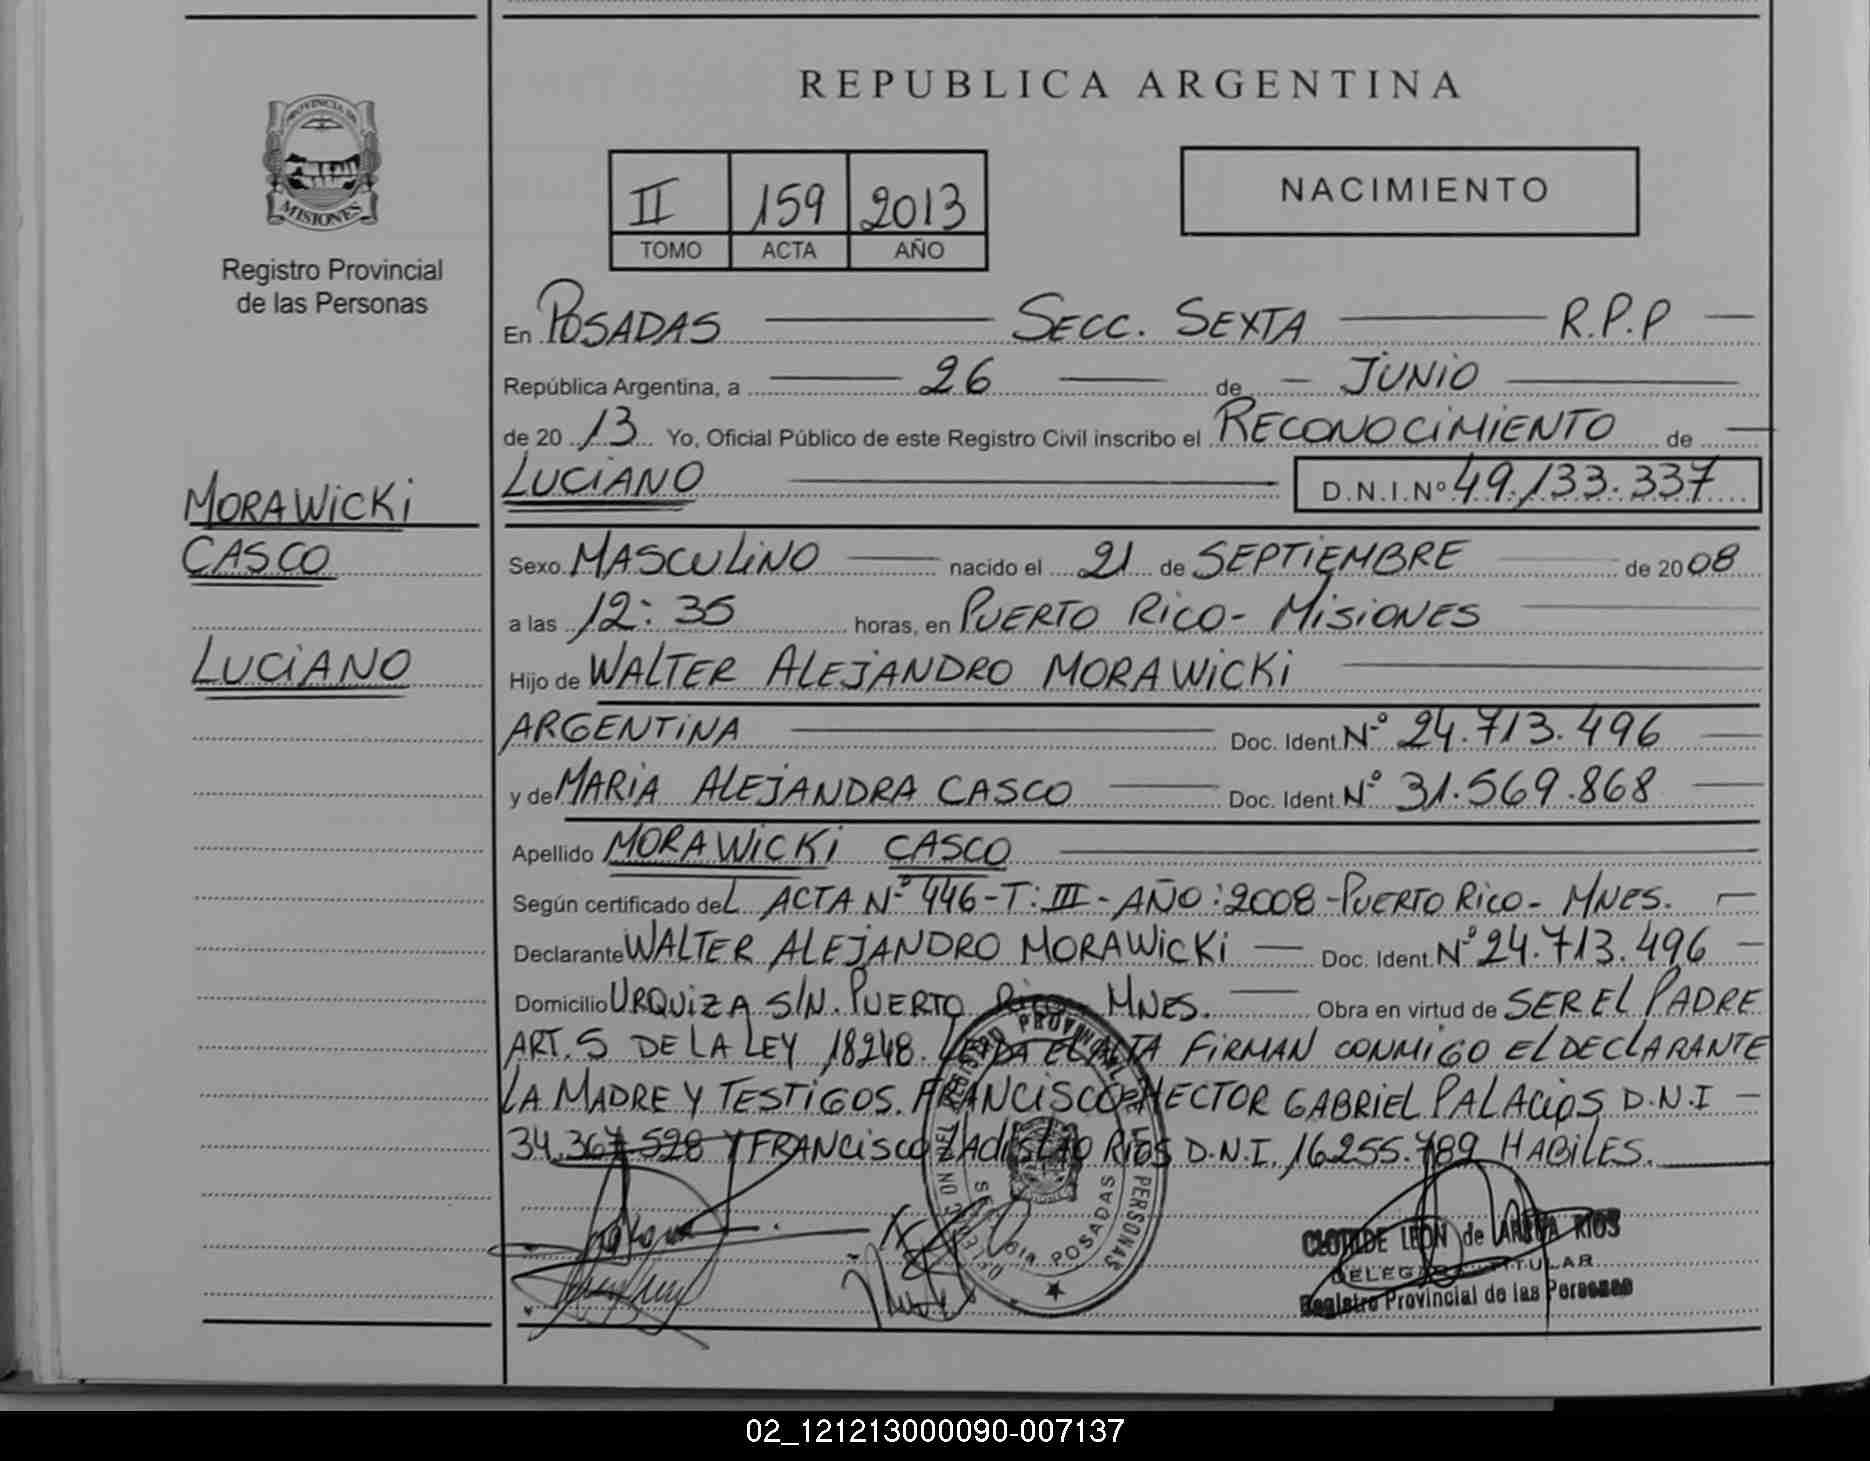 REPUBLICA ARGENTINA
PROVINCIA DE
MISIONES
Registro Provincial
de las Personas
II 159 2013
TOMO ACTA AÑO
NACIMIENTO
En POSADAS SECC. SEXTA R.P.P
República Argentina, a 26 de JUNIO
de 2013 Yo, Oficial Público de este Registro Civil inscribo el RECONOCIMIENTO de
LUCIANO D.N.I.Nº 49.133.337
MORAWICKI
CASCO
LUCIANO
Sexo MASCULINO nacido el 21 de SEPTIEMBRE de 2008
a las 12:35 horas, en PUERTO RICO- MISIONES
Hijo de WALTER ALEJANDRO MORAWICKI
ARGENTINA Doc. Ident. Nº 24.713.496
y de MARIA ALEJANDRA CASCO Doc. Ident. Nº 31.569.868
Apellido MORAWICKI CASCO
Según certificado deL ACTA Nº 446-T:III-AÑO:2008-PUERTO RICO- MNES.
Declarante WALTER ALEJANDRO MORAWICKI Doc. Ident. Nº 24.713.496
Domicilio URQUIZA S/N. PUERTO RICO MNES. Obra en virtud de SER EL PADRE
ART. 5 DE LA LEY 18248. LEIDA EL ACTA FIRMAN CONMIGO EL DECLARANTE
LA MADRE Y TESTIGOS. FRANCISCO HECTOR GABRIEL PALACIOS D.N.I
34.367.528 Y FRANCISCO LADISLAO RIOS D.N.I. 16255.789 HABILES.
REGISTRO PROVINCIAL DE LAS PERSONAS
POSADAS
CLOTILDE LEON de RIOS
DELEGADA TITULAR
Registro Provincial de las Personas
02_121213000090-007137